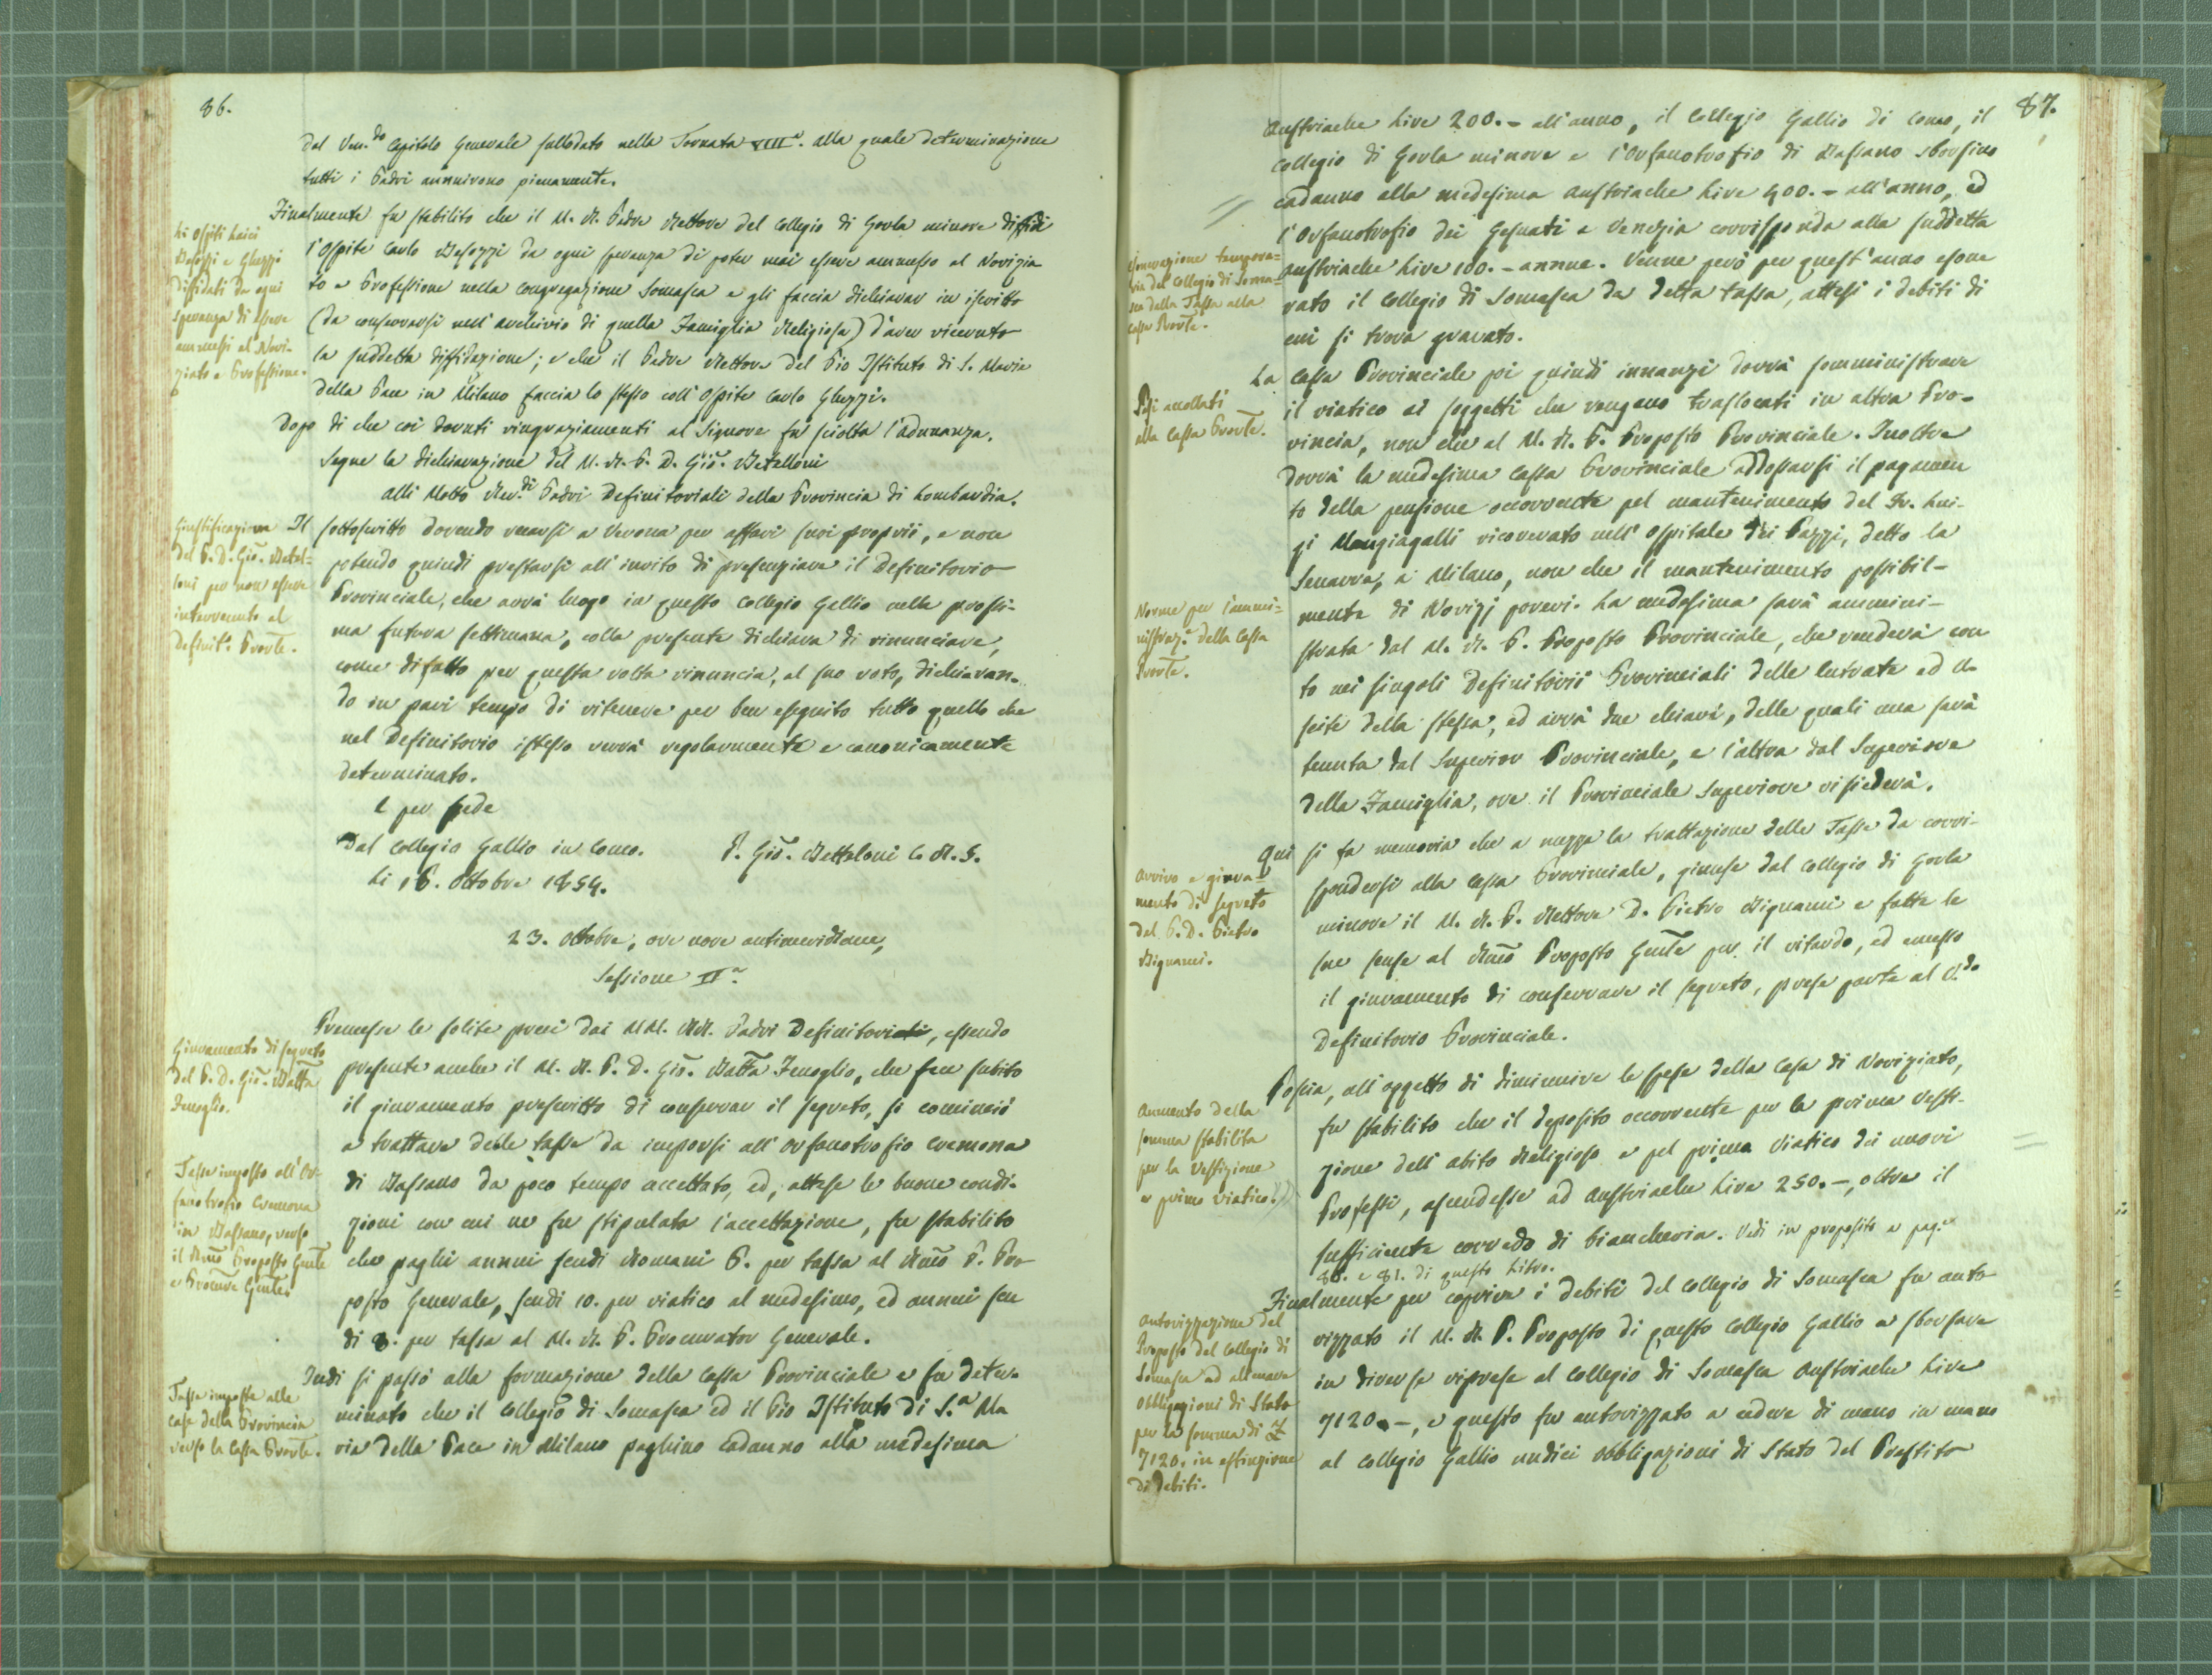 86.
dal Ven.do Capitolo Generale sullodato nella Tornata VIII.a alla quale determinazione
tutti i Padri annuirono pienamente.
Li Ospiti Laici
Besozzi e Ghezzi
diffidati da ogni
speranza di essere
ammessi al Novi-
ziato e Professione.
Finalmente fu stabilito che il M. R. Padre Rettore del Collegio di Gorla minore diffidi
l'Ospite Carlo Besozzi da ogni speranza di poter mai essere ammesso al Novizia
to e Professione nella Congregazione Somasca e gli faccia dichiarar in iscritto
(da conservarsi nell'archivio di quella Famiglia Religiosa) d'aver ricevuto
la suddetta diffidazione; e che il Padre Rettore del Pio Istituto di S. Maria
della Pace in Milano faccia lo stesso coll'Ospite Carlo Ghezzi.
Dopo di che coi dovuti ringraziamenti al Signore fu sciolta l'adunanza.
Segue la dichiarazione del M. R. P. D. Gio. Bettelloni
alli Molto Rev.di Padri Definitoriali della Provincia di Lombardia.
Giustificazione
del P. D. Gio. Bettel-
loni per non essere
intervenuto al
Definit.o Provle.
Il sottoscritto dovendo recarsi a Verona per affari suoi proprii, e non
potendo quindi prestarsi all'invito di presenziare il Definitorio
Provinciale, che avrà luogo in questo Collegio Gallio nella prossi-
ma futura settimana, colla presente dichiara di rinunciare,
come difatto per questa volta rinuncia, al suo voto, dichiaran-
do in pari tempo di ritenere per ben eseguito tutto quello che
nel Definitorio istesso verrà regolarmente e canonicamente
determinato.
E per fede
Dal Collegio Gallio in Como. P. Gio. Bettoloni C. R. S.
Li 16. Ottobre 1854.
23. Ottobre, ore nove antimeridiane,
Sessione II.a
Giuramento di segreto
del P. D. Gio. Batta
Fenoglio.
Premesse le solite preci dai MM. RR. Padri Definitoriali, essendo
presente anche il M. R. P. D. Gio. Batta Fenoglio, che fece subito
il giuramento prescritto di conservar il segreto, si cominciò
a trattare delle tasse da imporsi all'Orfanotrofio Cremona
di Bassano da poco tempo accettato, ed, attese le buone condi-
zioni con cui ne fu stipulata l'accettazione, fu stabilito
che paghi annui scudi Romani 6. per tassa al Rmo P. Pre
posto Generale, scudi 10. per viatico al medesimo, ed annui scu
di 3. per tassa al M. R. P. Procurator Generale.
Tasse imposte all'Or-
fanotrofio Cremona
in Bassano, verso
il Rmo Preposto Gnle
e Procure Gnle.
Tasse imposte alle
case della Provincia
verso la Cassa Provle.
Indi si passò alla formazione della Cassa Provinciale e fu deter-
minato che il Collegio di Somasca ed il Pio Istituto di S.a Ma
ria della Pace in Milano paghino cadauno alla medesima
87.
Austriache Lire 200.- all'anno, il Collegio Gallio di Como, il
Collegio di Gorla minore e l'Orfanotrofio di Bassano sborsino
cadauno alla medesima Austriache Lire 400.- all'anno, ed
l'Orfanotrofio dei Gesuati a Venezia corrisponda alla suddetta
Austriache Lire 100.- annue. Venne però per quest'anno esone
rato il Collegio di Somasca da detta tassa, attesi i debiti di
cui si trova gravato.
Esonerazione tempora-
ria del Collegio di Soma-
sca della Tassa alla
Cassa Provle.
Pesi accollati
alla Cassa Provle.
La Cassa Provinciale poi quindi innanzi dovrà somministrare
il viatico ai soggetti che vengano traslocati in altra Pro-
vincia, non che al M. R. P. Preposto Provinciale. Inoltre
dovrà la medesima Cassa Provinciale addossarsi il pagamen
to della pensione occorrente pel mantenimento del Fr. Lui-
gi Mangiagalli ricoverato nell'Ospitale dei Pazzi, detto la
Senavra, a Milano, non che il mantenimento possibil-
mente di Novizj poveri. La medesima sarà ammini-
strata dal M. R. P. Preposto Provinciale, che renderà con
to nei singoli Definitorii Provinciali delle entrate ed u-
scite della stessa, ed avrà due chiavi, delle quali una sarà
tenuta dal Superior Provinciale, e l'altra dal Superiore
della Famiglia, ove il Provinciale Superiore risiederà.
Norme per l'ammi-
nistraz.e della Cassa
Provle.
Arrivo e giura-
mento di segreto
del P. D. Pietro
Bignami.
Qui si fa memoria che a mezza la trattazione delle Tasse da corri-
spondersi alla Cassa Provinciale, giunse dal Collegio di Gorla
minore il M. R. P. Rettore D. Pietro Bignami e fatte le
sue scuse al Rmo Preposto Gnle per il ritardo, ed emesso
il giuramento di conservare il segreto, prese parte al V.do
Definitorio Provinciale.
Aumento della
somma stabilita
per la Vestizione
e primo viatico.
Poscia, all'oggetto di diminuire le spese della Casa di Noviziato,
fu stabilito che il deposito occorrente per la prima Vesti-
zione dell'abito Religioso e pel primo viatico dei nuovi
Professi, ascendesse ad Austriache Lire 250.-, oltre il
sufficiente corredo di biancheria. Vedi in proposito a pag.e
80. e 81. di questo Libro.
Autorizzazione del
Preposto del Collegio di
Somasca ad alienare
obbligazioni di Stato
per la somma di £
7120. in estinzione
di debiti.
Finalmente per coprire i debiti del Collegio di Somasca fu auto
rizzato il M. R. P. Preposto di questo Collegio Gallio a sborsare
in diverse riprese al Collegio di Somasca Austriache Lire
7120.-, e questo fu autorizzato a cedere di mano in mano
al Collegio Gallio undici obbligazioni di Stato del Prestito